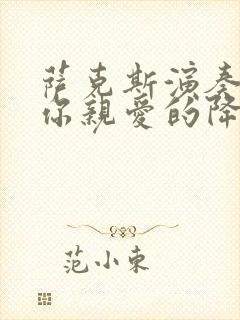 萨克斯演奏
你親愛的降
范小東